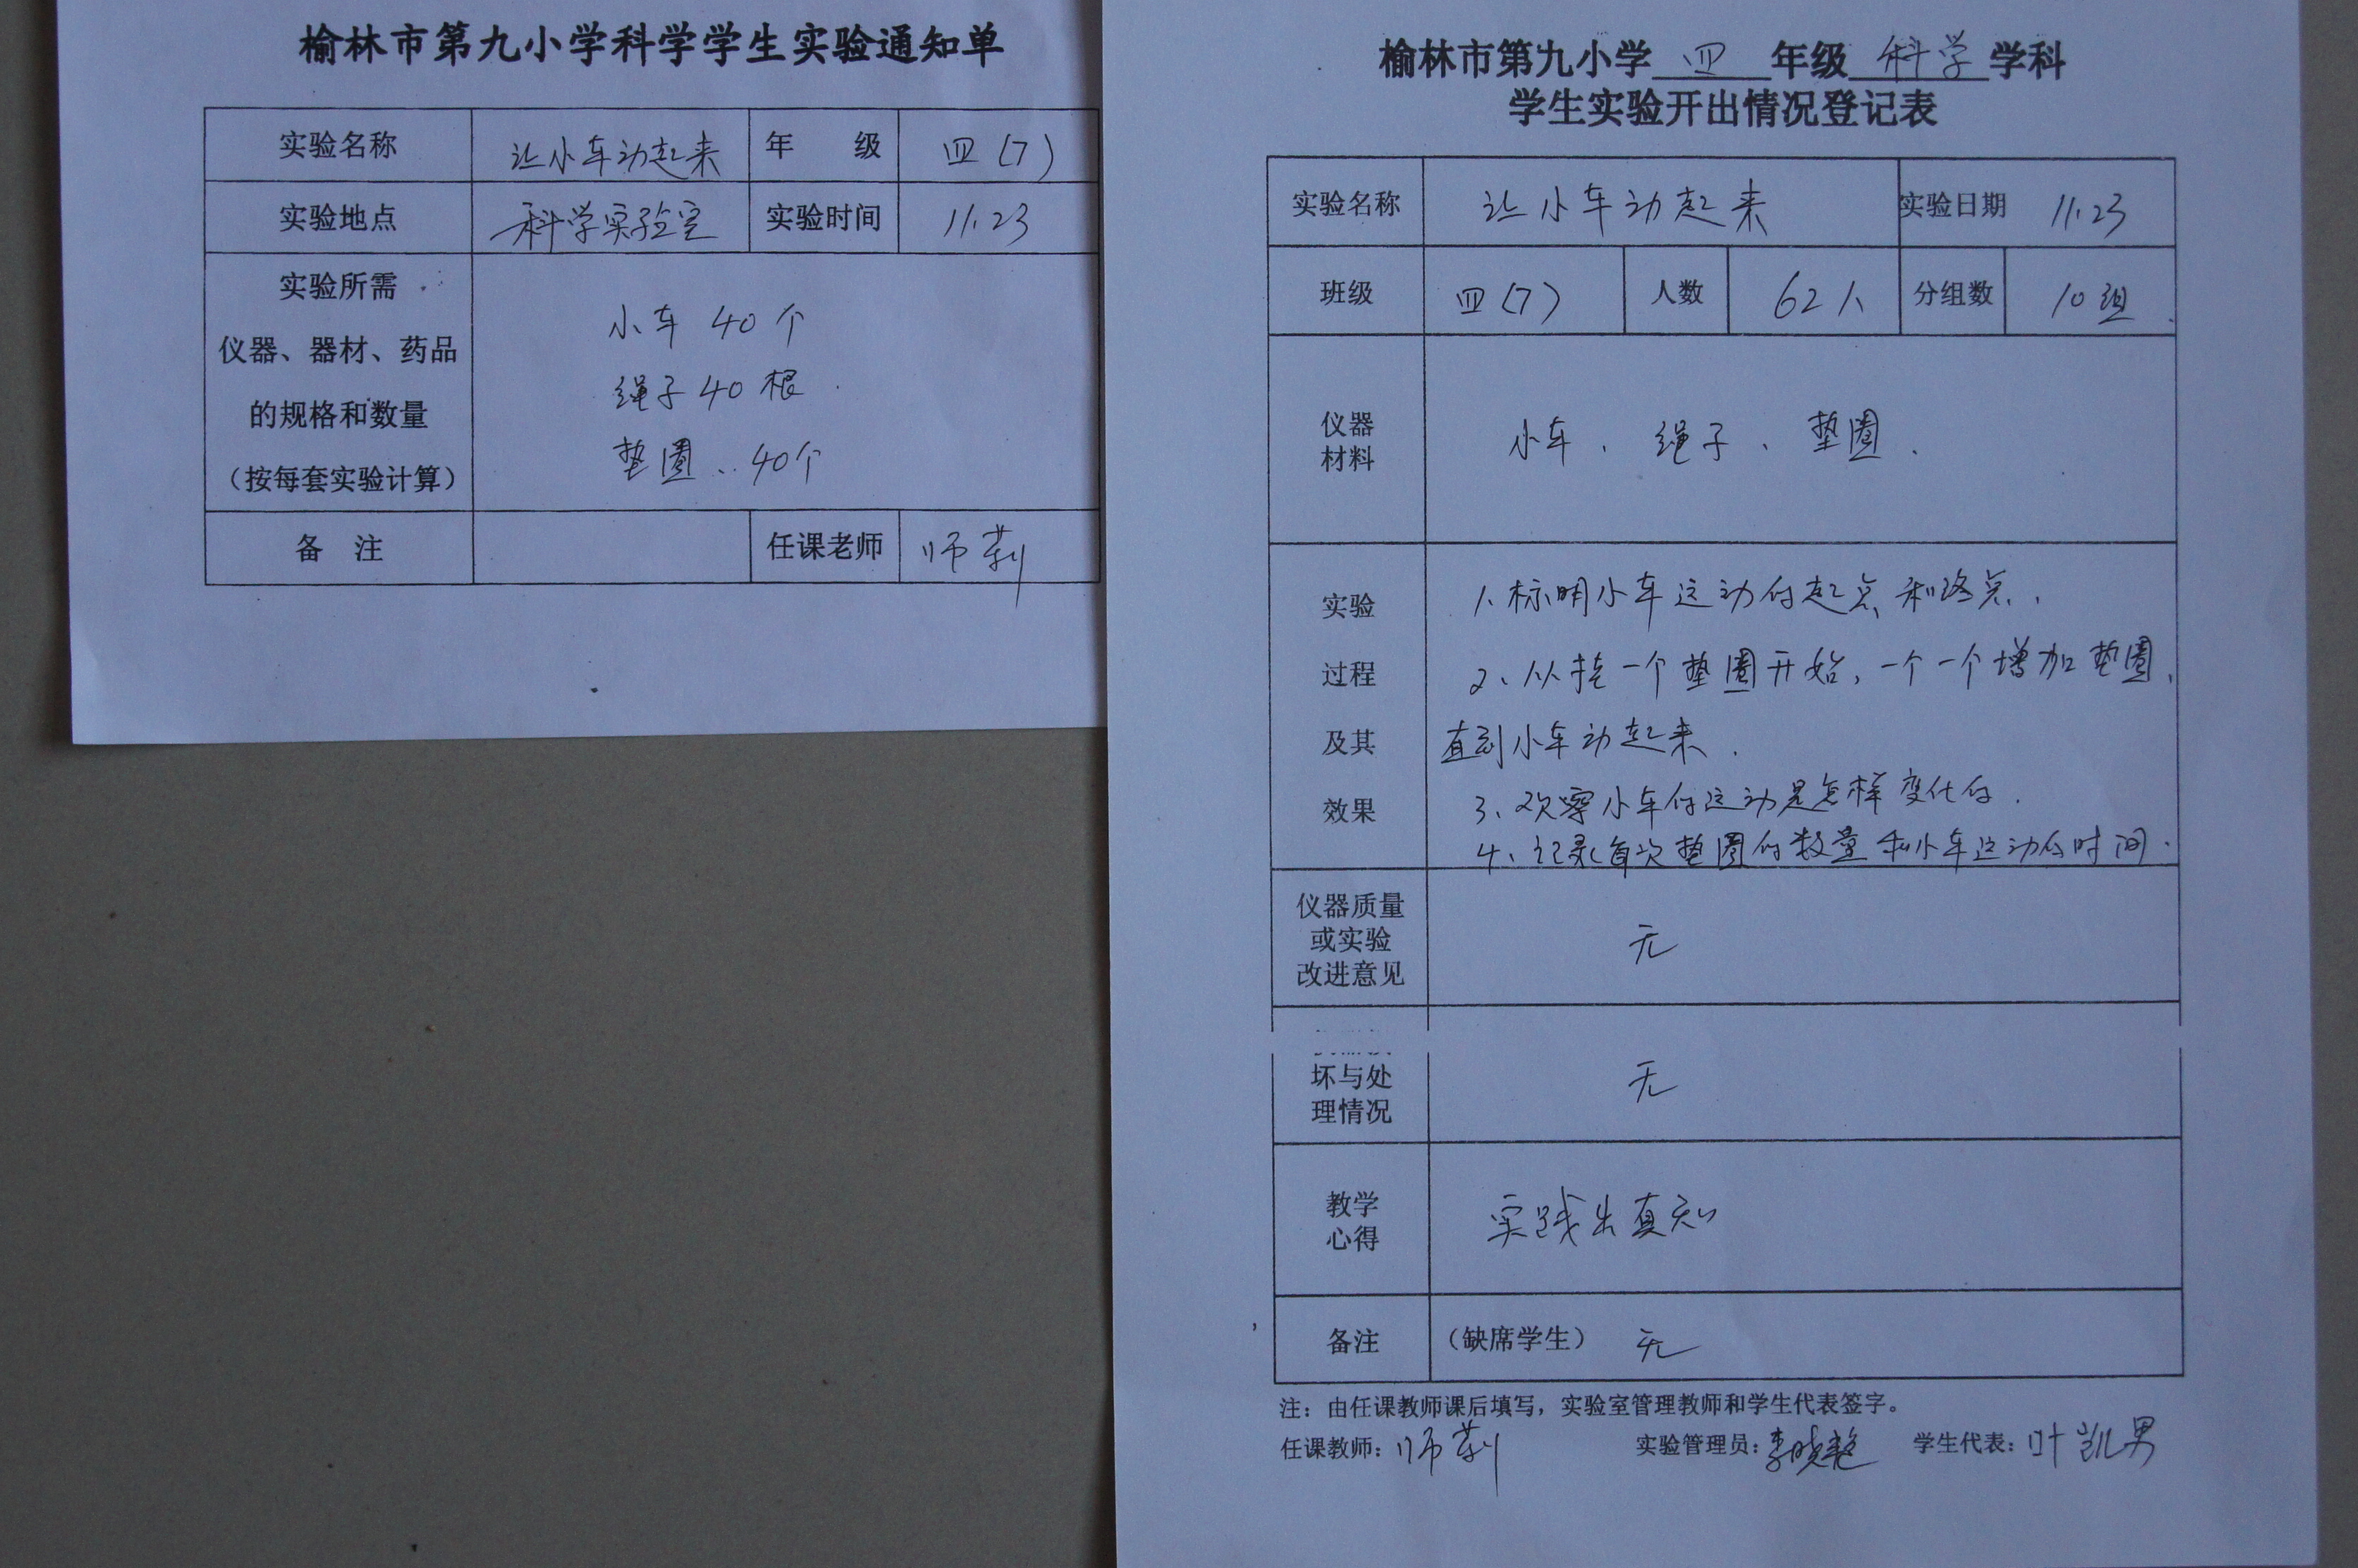 榆林市第九小学科学学生实验通知单
实验名称 让小车动起来 年 级 四(7)
实验地点 科学实验室 实验时间 11.23
实验所需
仪器、器材、药品
的规格和数量
（按每套实验计算）
小车 40个
绳子40根
垫圈 40个
备 注 任课老师 师莉
榆林市第九小学 四 年级 科学 学科
学生实验开出情况登记表
实验名称 让小车动起来 实验日期 11.23
班级 四(7) 人数 62人 分组数 10组
仪器
材料
小车、绳子、垫圈.
实验
过程
及其
效果
1、标明小车运动的起点和终点.
2、从挂一个垫圈开始，一个一个增加垫圈，
直到小车动起来.
3、观察小车的运动是怎样变化的.
4、记录每次垫圈的数量和小车运动的时间.
仪器质量
或实验
改进意见
无
坏与处
理情况
无
教学
心得
实践出真知
备注 （缺席学生） 无
注：由任课教师课后填写，实验室管理教师和学生代表签字。
任课教师：师莉 实验管理员：李晓艳 学生代表：叶凯男